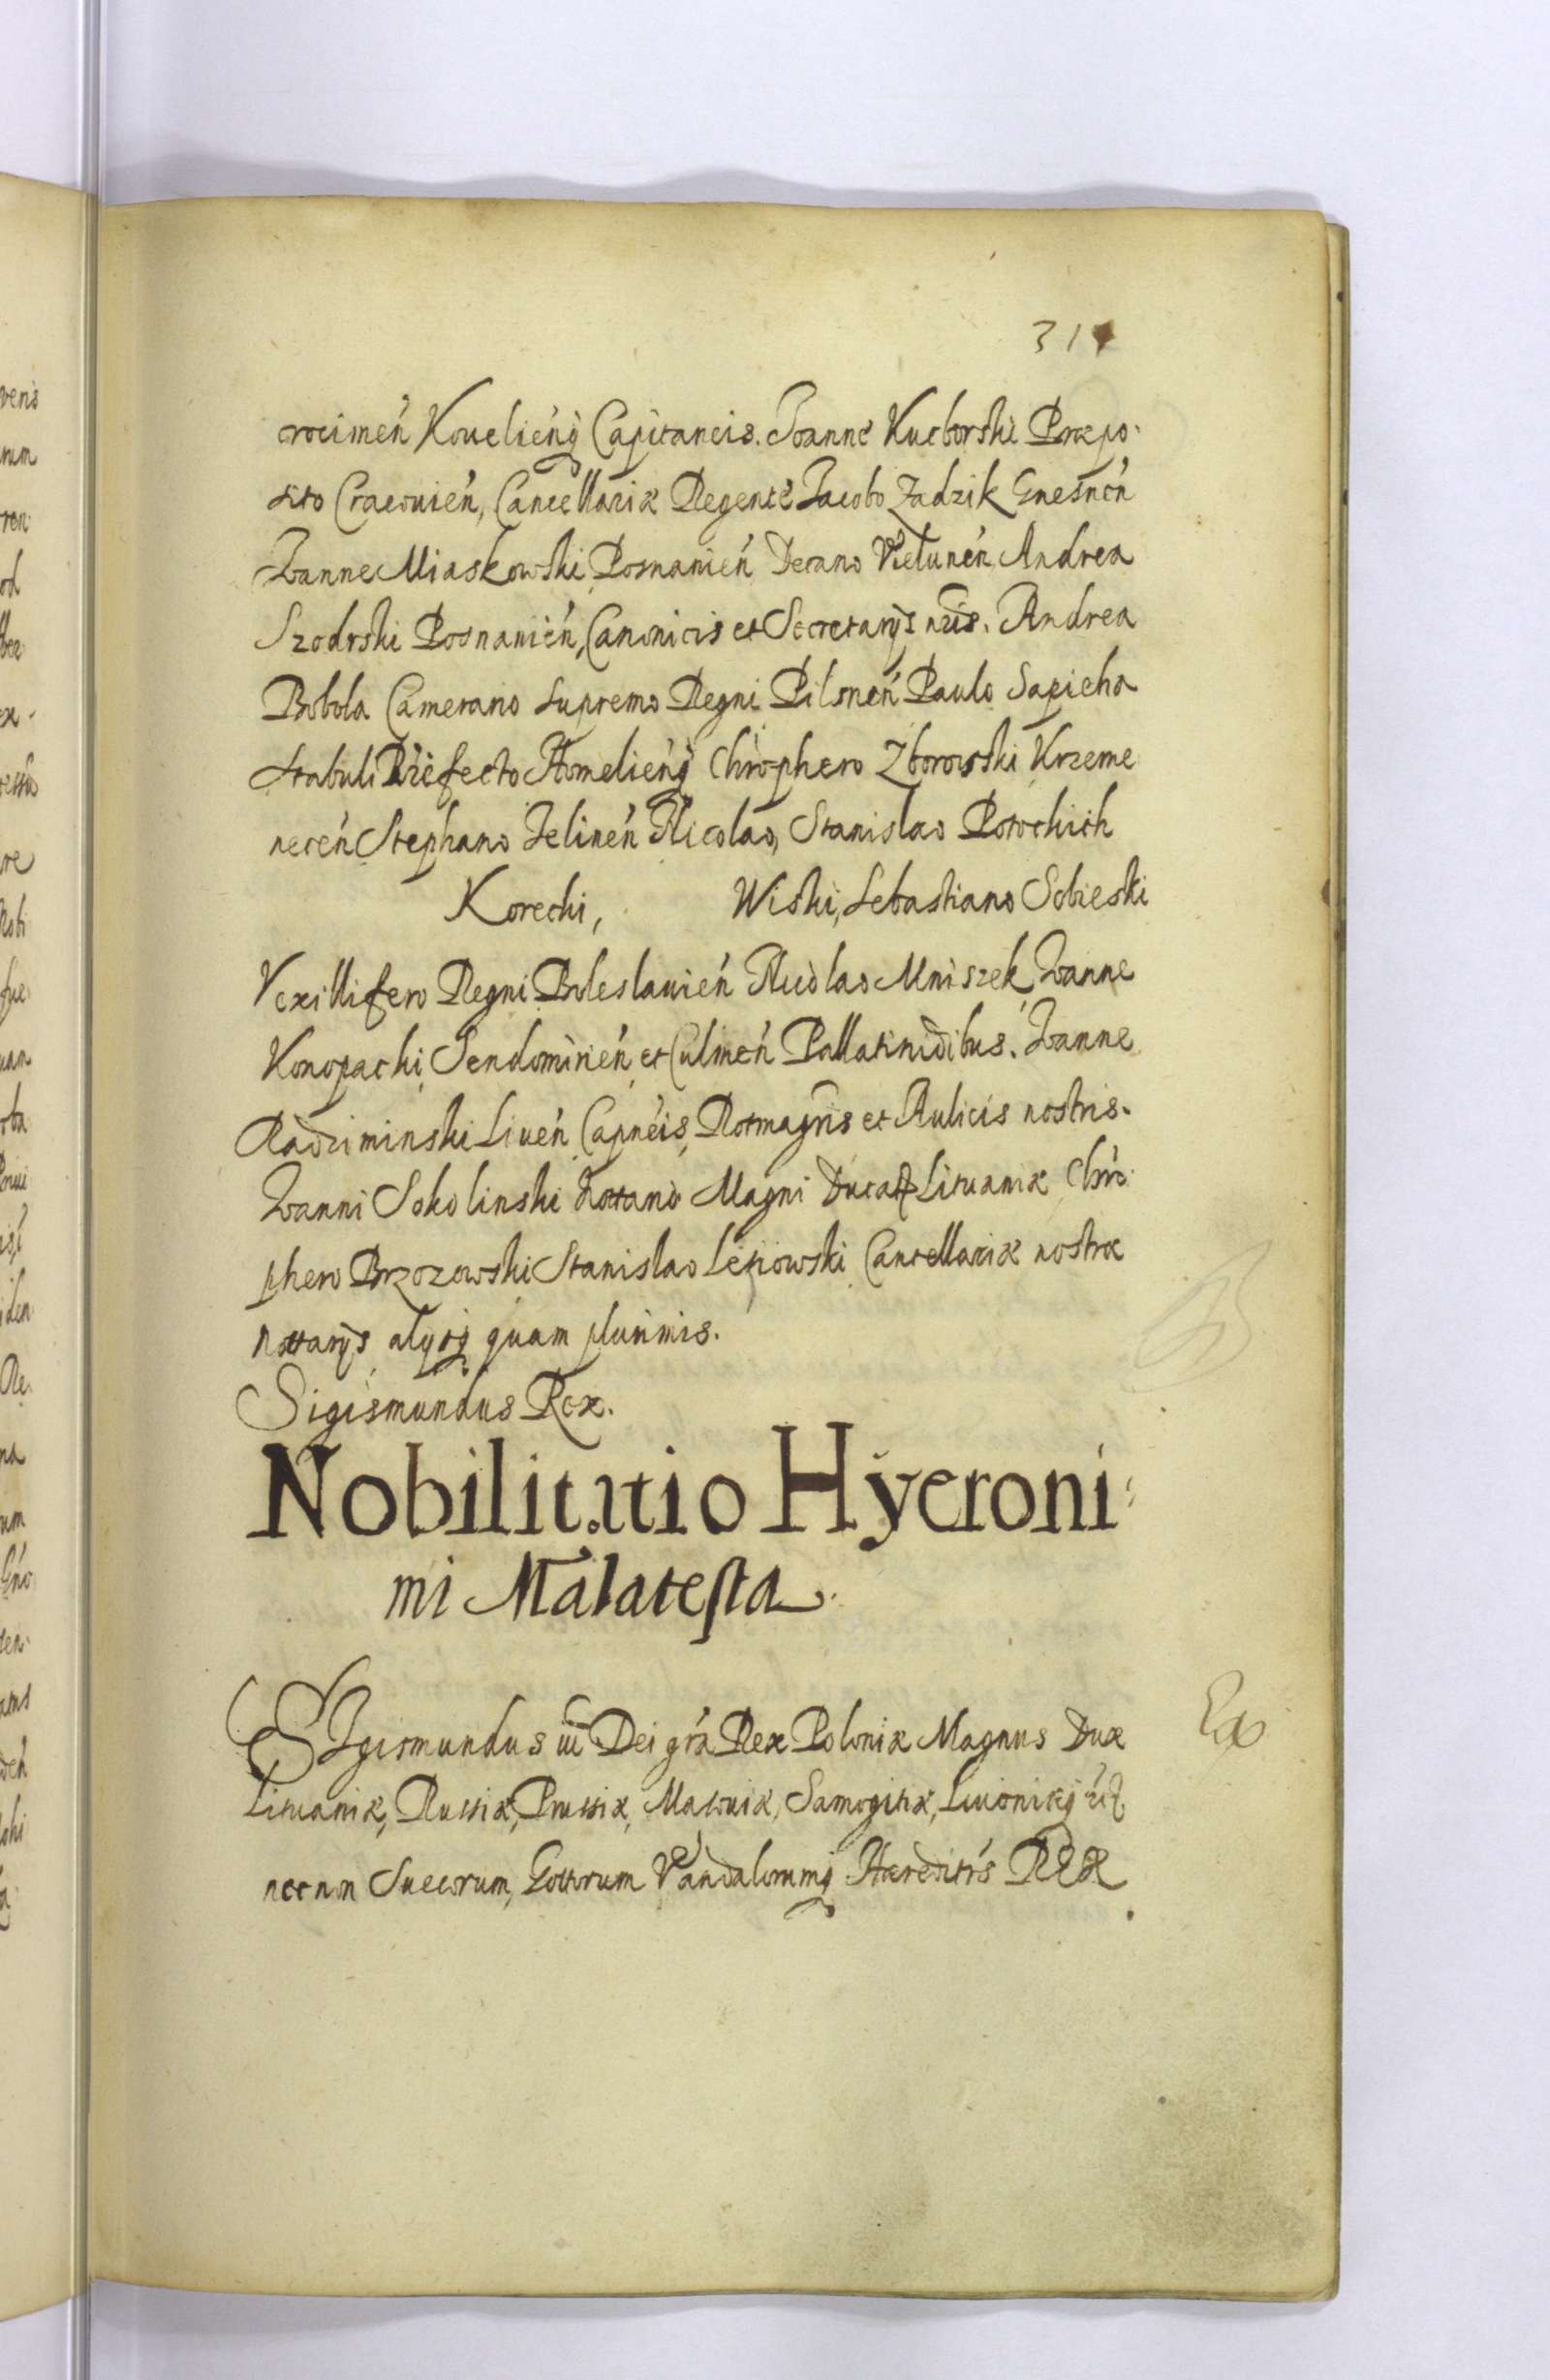 314
crocimen̄ Kouelien̄q Capitaneis. Joanne Kuchorski Præpo-
sito Cracouien̄, Cancellariæ Regente Jacobo Zadzik Gnesnen̄
Joanne Miaskowski, Posnanien̄ Decano Vielunen̄ Andrea
Szodrski Posnanien̄, Canonicis et Secretarijs nr̄is. Andrea
Bobola Camerario supremo Regni Pilsnen̄ Paulo Sapieha
Stabuli Præfecto Homelien̄q Chrōphero Zborowski Krzeme
necen̄ Stephano Felinen̄ Nicolao, Stanislao Potockich
Korecki, Wiski, Sebastiano Sobieski
Vexillifero Regni Boleslauien̄ Nicolao Mniszek, Joanne
Konopacki Sendomirien̄, et Culmen̄ Pallatinidibus. Joanne
Radziminski Liuen̄ Capn̄eis, Rotmagr̄is et Aulicis nostris.
Joanni Sokolinski Nottario Magni Ducat Lituaniæ Chrō-
phero Brzozowski Stanislao Lepiowski Cancellariæ nostræ
Nottarijs alijsq quam plurimis.
Sigismundus Rex.
Nobilitatio Hÿeroni-
mi Malatesta.
SIgismundus iii Dei grā Rex Poloniæ Magnus Dux
Lituaniæ, Russiæ, Prussiæ, Masouiæ, Samogitiæ, Liuoniæq
nec non Suecorum, Gottorum Vandalorumq Hæreditr̄s REX
Ex